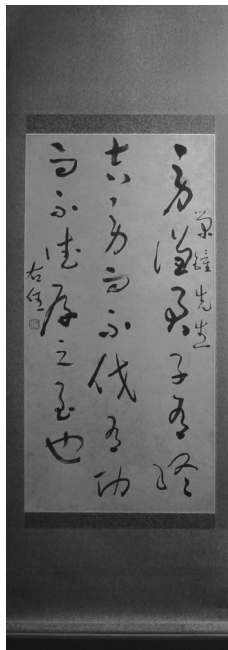 鐘先生
勞謙君子有終
吉勞而不伐有功
而不德厚之至也
右任